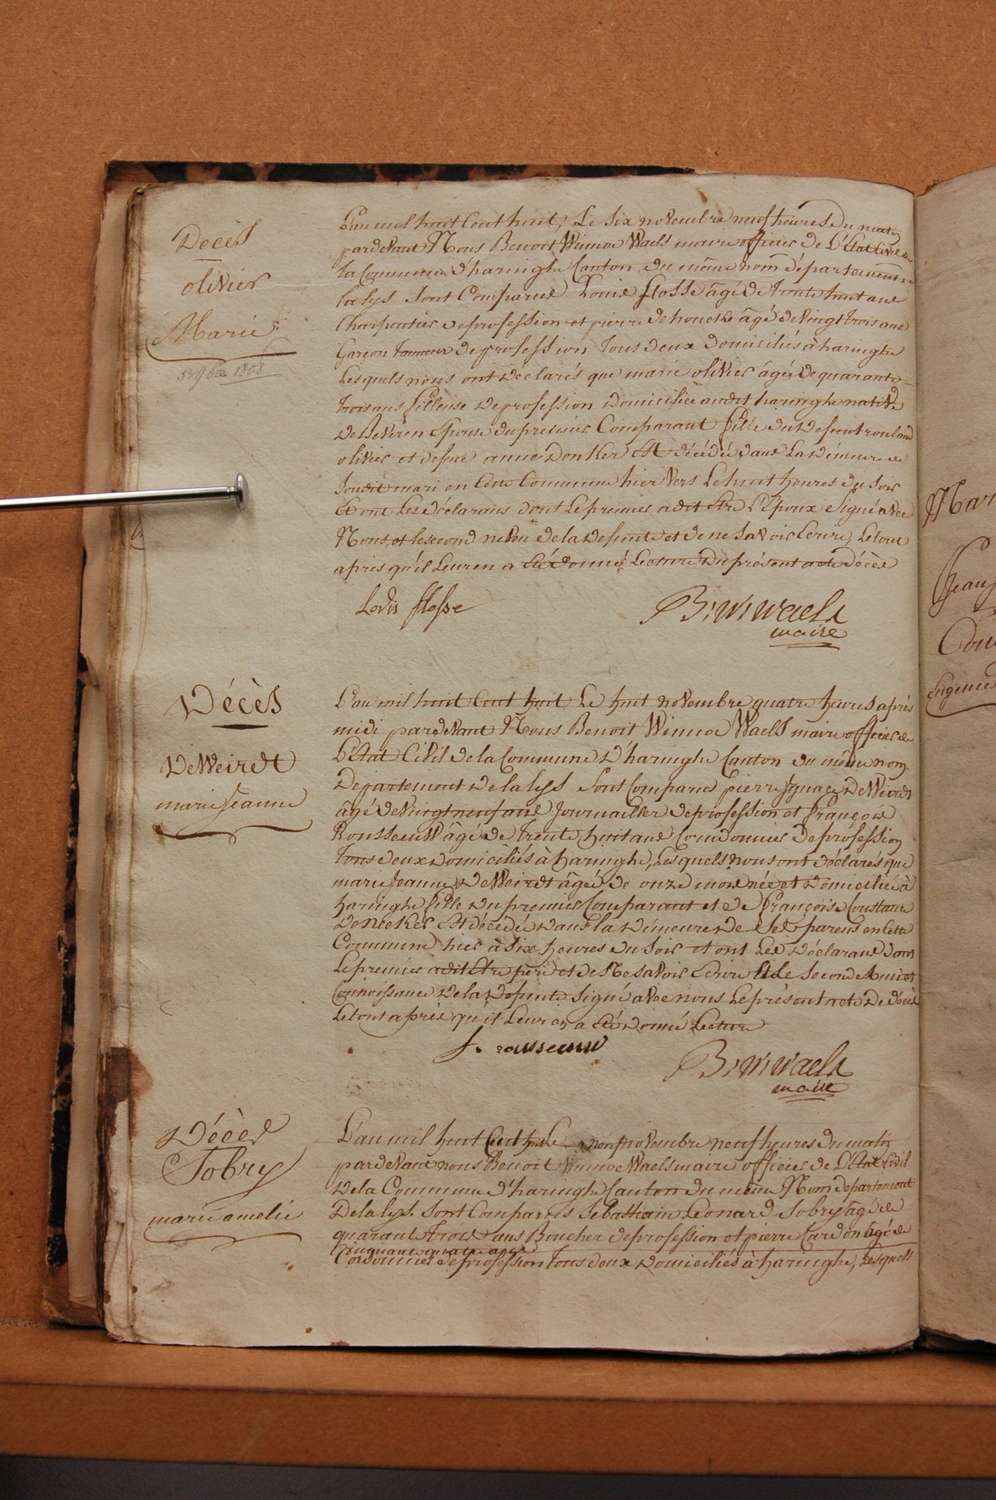 Décès
olivier
Marie
L'an mil huit Cent huit, Le Six novembre neuf heures du matin
pardevant Nous Benoit Winnoc Waels maire officier de L'état Civil de
la Commune d'haringhe Canton du même nom département de
la lys Sont Comparus Louis flosse âgé de trente huit ans
Charpentier de profession et pierre dehoucke âgé de vingt trois ans
Garçon de profession tous deux domiciliés à haringhe
Lesquels nous ont déclarés que marie olivier agée de quarante
trois ans fileuse de profession Domiciliée audit haringhe native
de Epouse du premier Comparant fille du defunt rouland
olivier et defunte anne donker Est décédée dans La demeure de
Sondit mari en Cette Commune hier vers Le huit heures du Soir
Et ont Les déclarans dont Le premier a dit être L'Epoux Signé avec
Nous, et le second neveu de la Defunte et de ne Savoir Ecrire, Le tout
après qu'il Leur en a été donné Lecture Du présent acte de décès
Lovis flosse
B: W: Waels
maire
Décès
DeWeirdt
marie Jeanne
L'an mil huit Cent huit Le huit novembre quatre heures après
midi pardevant Nous Benoit Winnoc Waels maire officier de
L'état Civil de la Commune D'haringhe Canton du même nom
Département De la lys Sont Comparus pierre Ignace DeWeirdt
âgé de vingt neuf ans Journaillier de profession et François
Rousseeuw agé de trente huit ans Cordonnier de profession
tous deux Domiciliés à haringhe, Lesquels nous ont déclarés que
marie Jeanne DeWeirdt âgée de onze mois née et Domiciliée à
haringhe fille Du premier Comparant et de Françoise Constance
Est décédée Dans la Demeure de Ses parens en Cette
Commune hier à Six heures du Soir et ont Les Déclarans dont
Le premier a dit être père et de Ne Savoir Ecrire et Le Second Ami et
Connoissance de la Defunte Signé avec nous Le présent acte De décès
Le tout après qu'il Leur en a été Donné Lecture
f. rousseeuw
B: W: Waels
maire
Décès
Sobry
marie amelie
L'an mil huit Cent huit Le neuf novembre neuf heures du matin
pardevant nous Benoit Winnoc Waels maire officier de L'état Civil
De la Commune d'haringhe Canton du même Nom département
De la lys Sont Comparus Sebastiain Leonard Sobry âgé de
quarant trois ans Boucher de profession et pierre Cardon âgé de
Cinquante quatre ans
Cordonnier de profession tous deux Domiciliés à haringhe, Lesquels
Mar
Jean